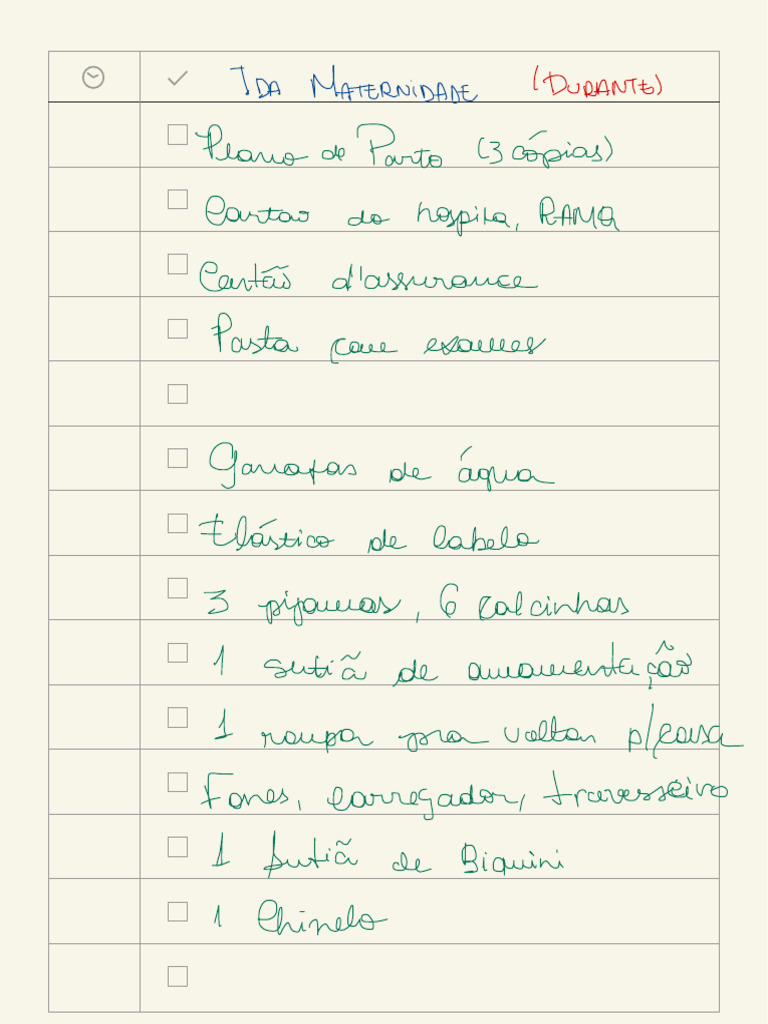 IDA MATERNIDADE (DURANTE)
Plano de Parto (3 cópias)
Cartao do hospita, RAMQ
Cartão d'assurance
Pasta com exames
Garrafas de água
Elástico de cabelo
3 pijamas, 6 calcinhas
1 sutiã de amamentação
1 roupa pra voltar p/casa
Fones, carregador, travesseiro
1 sutiã de Biquini
1 Chinelo